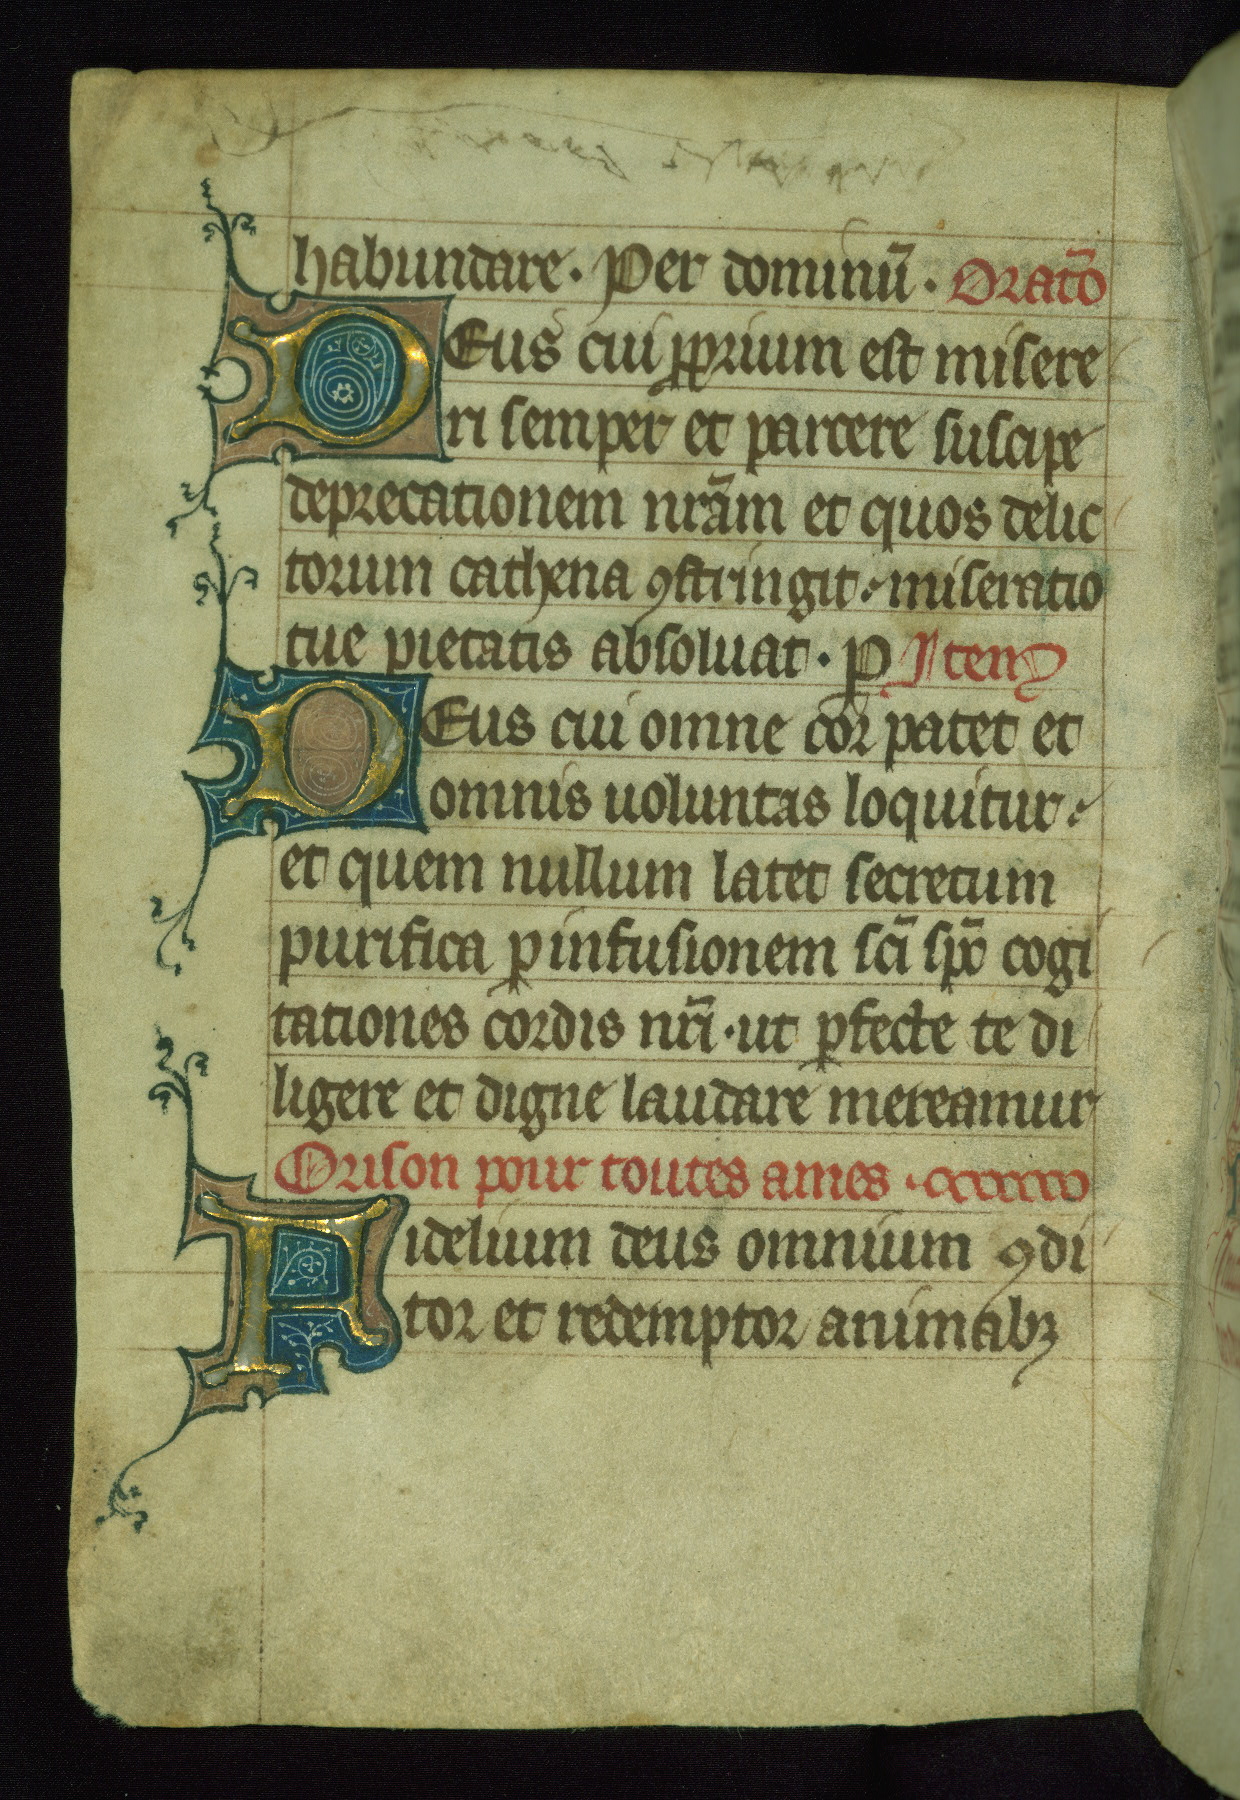 habundare. Per dominū. Orat̄o
DEus cui ꝓprium est misere
ri semper et parcere suscipe
deprecationem nr̄am et quos delic
torum cathena ꝯstringit. miseratio
tue pietatis absoluat. ꝑ Item
DEus cui omne cor patet et
omnis uoluntas loquitur.
et quem nullum latet secretum
purifica ꝑ infusionem sc̄i sp̄c cogi
tationes cordis nr̄i. ut ꝑfecte te di
ligere et digne laudare mereamur
Orison pour toutes ames.
Fidelium deus omnium ꝯdi
tor et redemptor animabꝫ